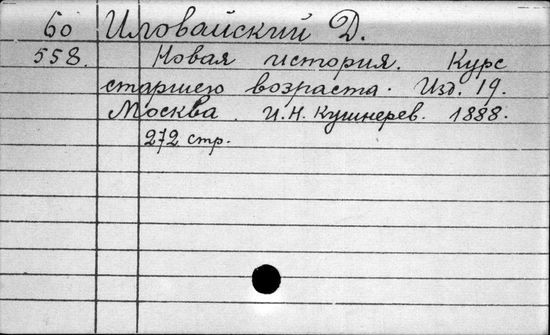 60 Иловайский Д.
558. Новая история. Курс
старшего возраста. Изд. 19.
Москва. И.Н. Кушнерев. 1888.
272 стр.